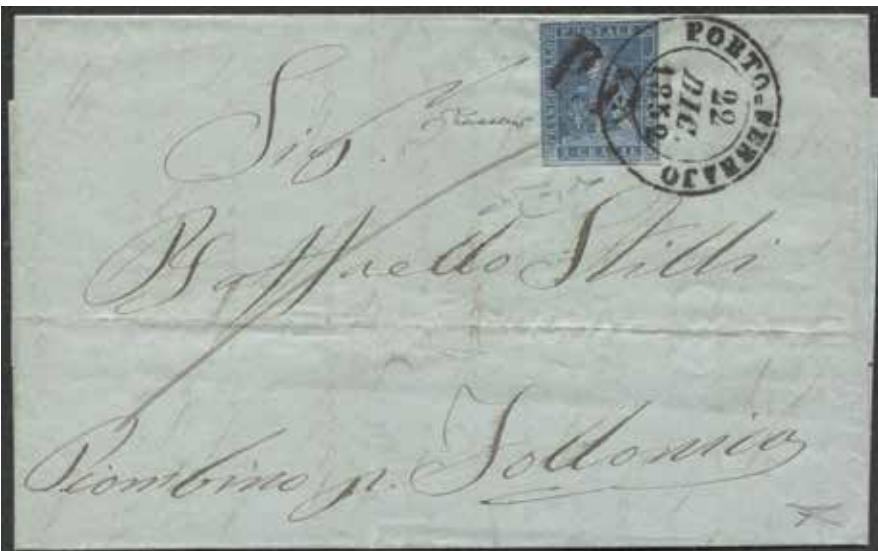 POSTALE
P.D.
PORTO=FERRAJO
22
DIC.
1852
Sig.
Raffaello Stilli
Piombino p. Follonica